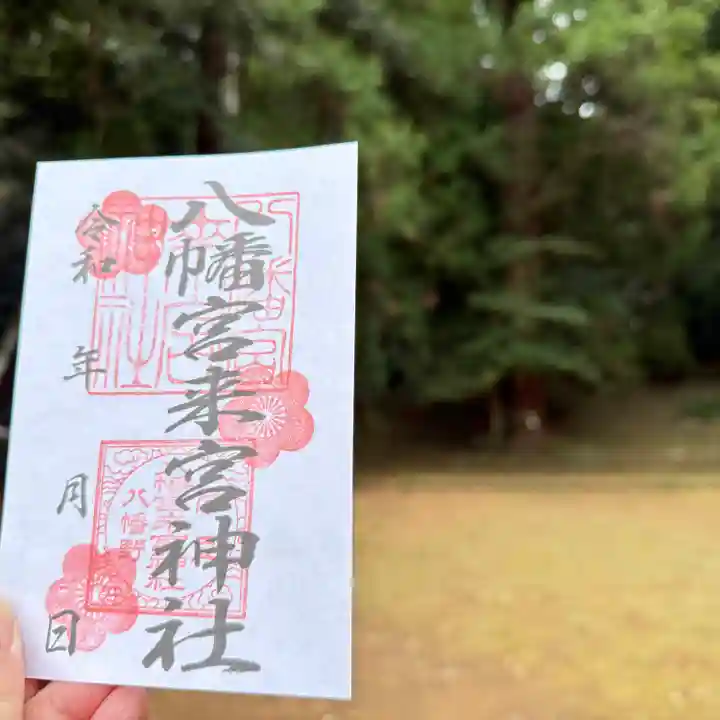 八幡宮来宮神社
令和 年 月 日
八幡野